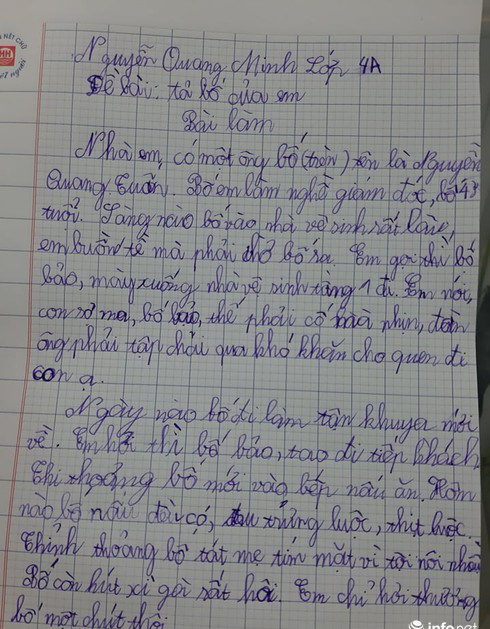 NÉT CHỮ
NẾT NGƯỜI
Nguyễn Quang Minh Lớp 4A
Đề bài: tả bố của em
Bài làm
Nhà em, có một ông bố (trộn) tên là Nguyễn
Quang Tuấn. Bố em làm nghề giám đốc, bố 43
tuổi. Sáng nào bố vào nhà vệ sinh rất lâu,
em buồn tè mà phải chờ bố ra. Em gọi thì bố
bảo, mày xuống nhà vệ sinh tầng 1 đi. Em nói,
con sợ ma, bố bảo, thế phải cố mà nhịn, đàn
ông phải tập chải qua khó khăn cho quen đi
con ạ.
Ngày nào bố đi làm tận khuya mới
về. Em hỏi thì bố bảo, tao đi tiếp khách
Thi thoảng bố mới vào bếp nấu ăn. Hôm
nào bố nấu đều có, trứng luộc, thịt luộc.
Thỉnh thoảng bố tát mẹ tím mặt vì tội nói nhiều
Bố còn hút xì gà rất hôi. Em chỉ hơi thương
bố một chút thôi.
infonet